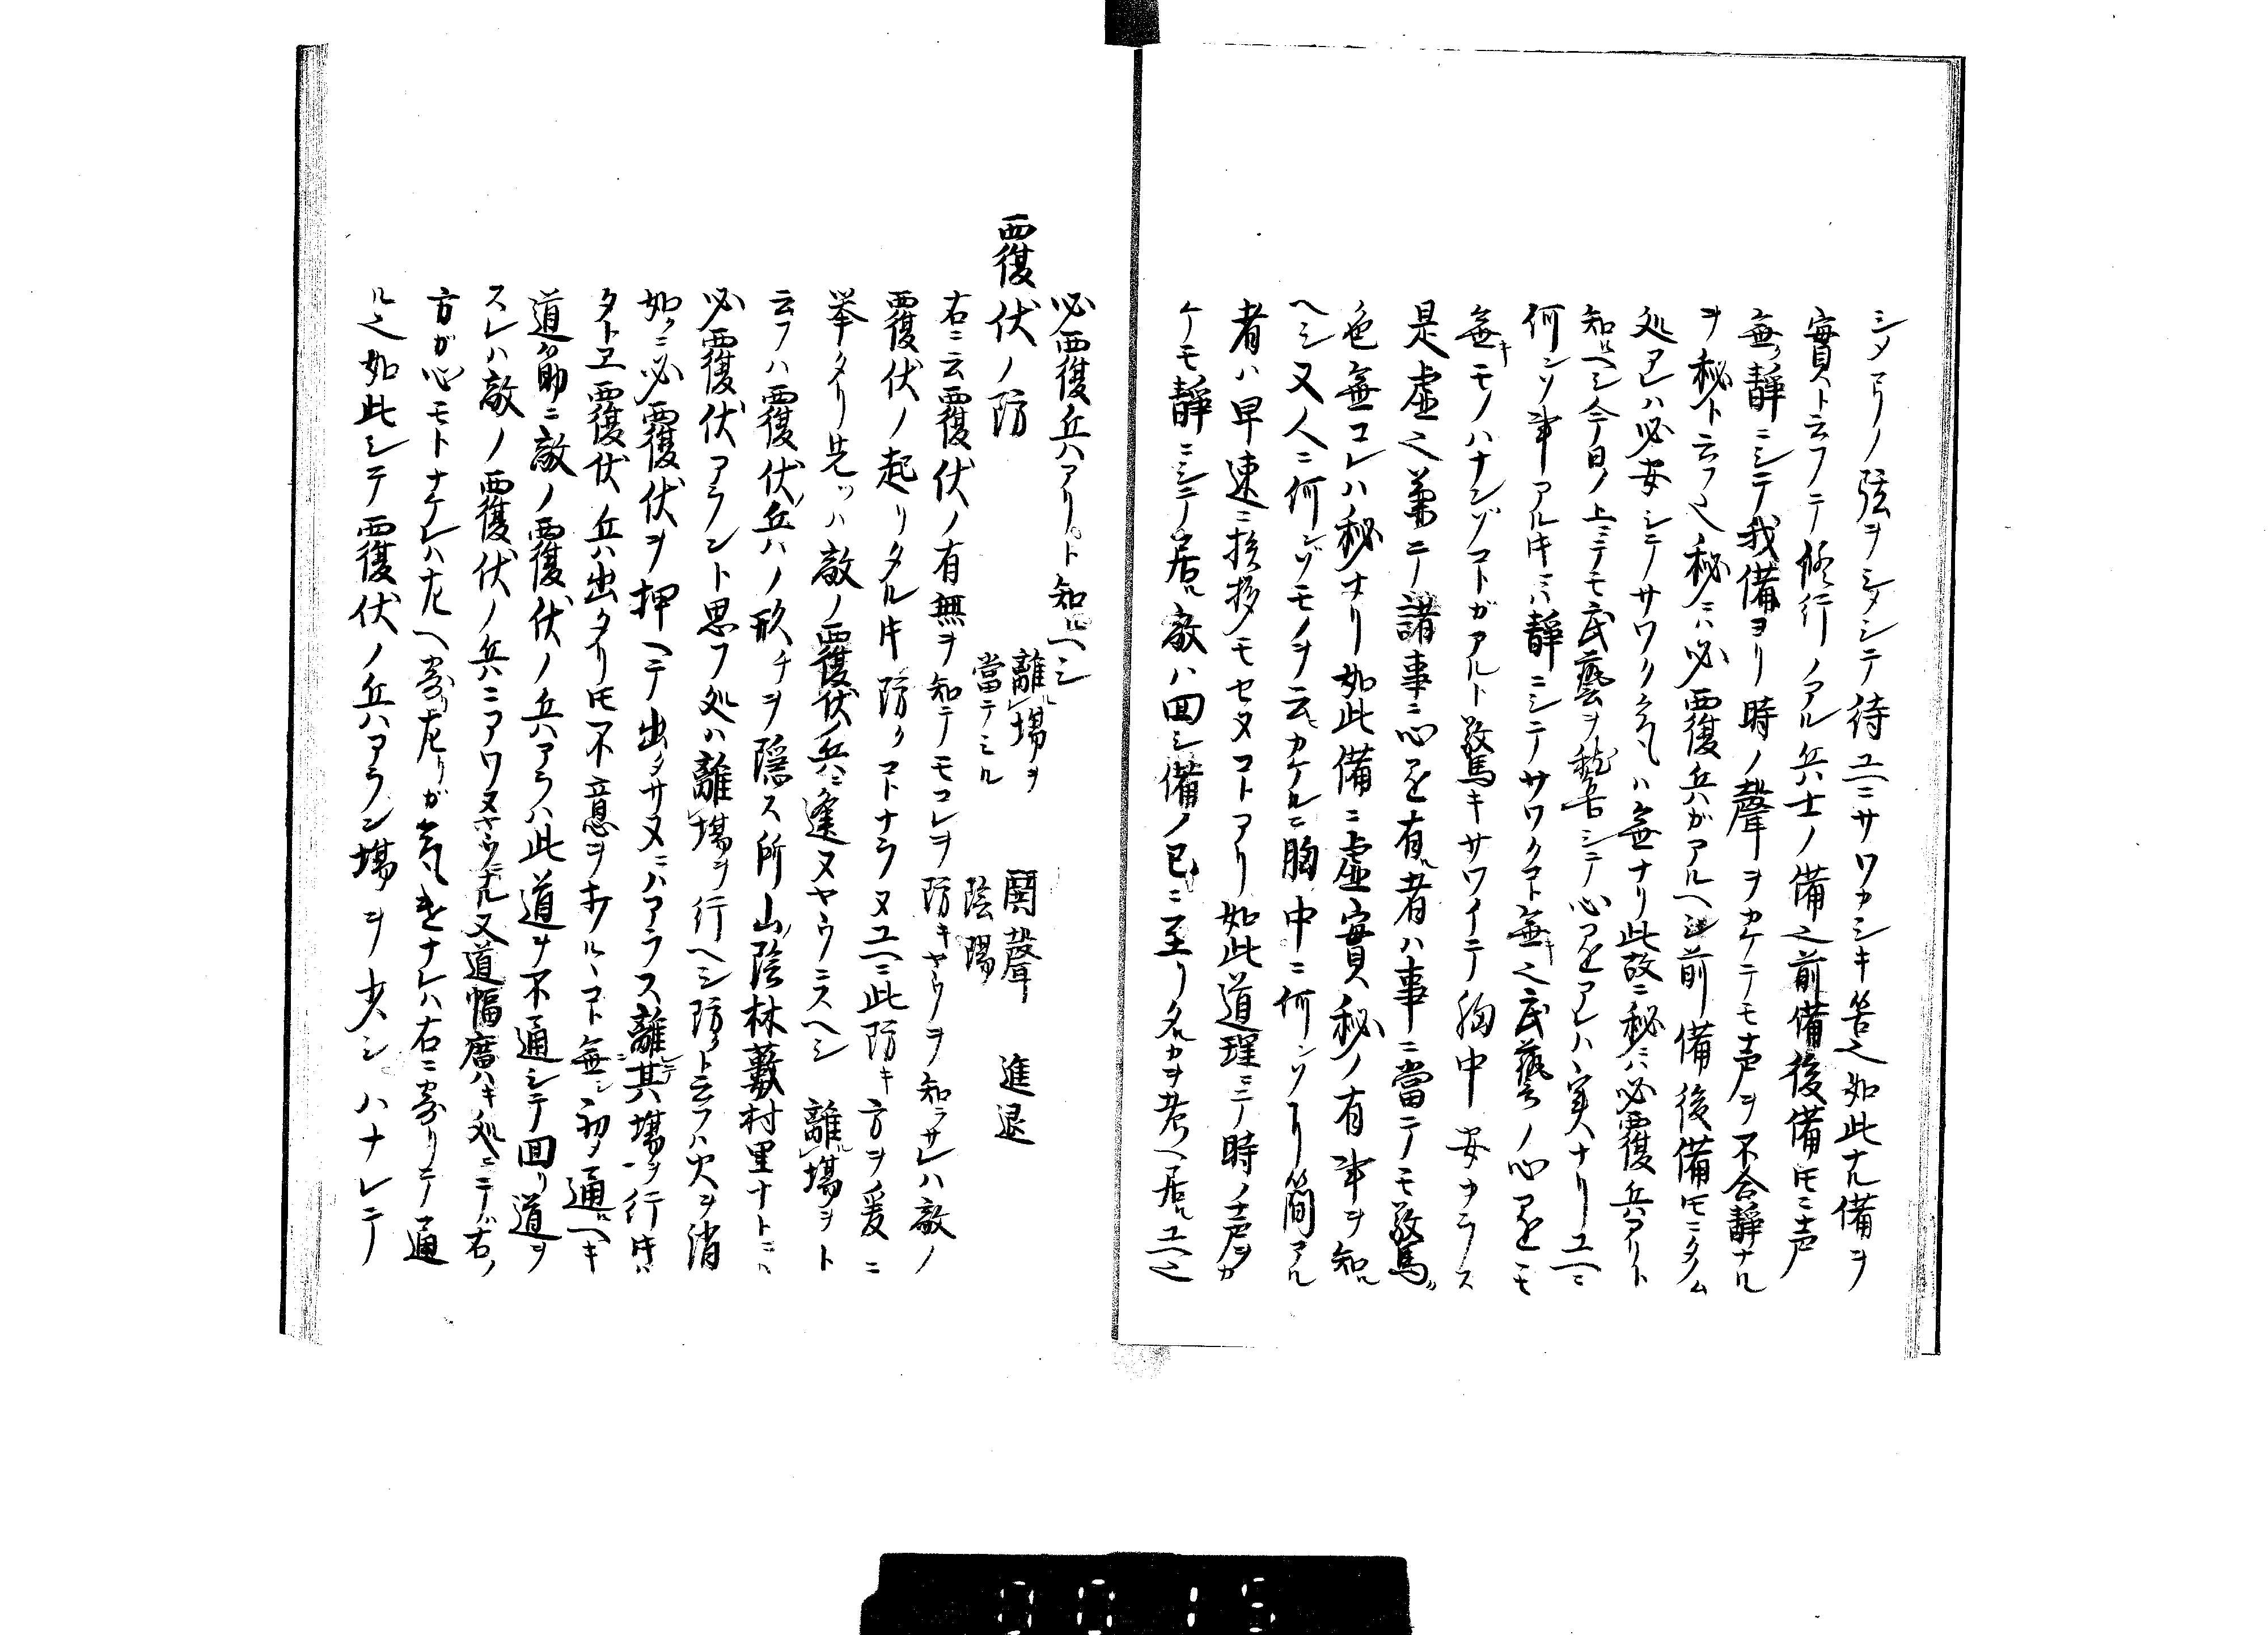 シメヨリノ弦ヲシメシテ待ユヘニサワカシキ筈也如此ナル備ヲ
實ト云フテ修行ノアル兵士ノ備也前備後備トモニ声
無静ニシテ我備ヨリ時ノ聲ヲカケテモ声ヲ不合静ナル
ヲ秘ト云フ也秘ニハ必覆兵ガアルヘシ前備後備トモニタノム
処アレハ必安シテサワク気ハ無ナリ此故ニ秘ニハ必覆兵アリト
知ルヘシ今日ノ上ニテモ武藝ヲ稽古シテ心アレハ実ナリユヘニ
何ンソ事アルトキニハ静ニシテサワクコト無キ也武藝ノ心モ
無キモノハナンゾコトガアルト驚キサワイテ胸中安カラス
是虚也兼テ諸事ニ心ヲ有ル者ハ事ニ當テモ驚
色無コレハ秘ナリ如此備ニ虚實秘ノ有事ヲ知ル
ヘシ又人ニ何ンゾモノヲ云カケルニ胸中ニ何ンソ了簡アル
者ハ早速ニ挨拶モセヌコトアリ如此道理ニテ時ノ声ヲカ
ケモ静ニシテ居ル敵ハ回シ備ノ已ニ至リ名カヲ考ヘ居ルユヘ也
必覆兵アリト知ルヘシ
覆伏ノ防 離ル場ヲ當テミル 鬨聲陰陽 進退
右ニ云覆伏ノ有無ヲ知テモコレヲ防キヤウヲ知ラサレハ敵ノ
覆伏ノ起リタルトキ防クコトナラヌユヘニ此防キ方ヲ爰ニ
挙タリ先ツハ敵ノ覆伏ノ兵ニ逢ヌヤウニスヘシ離ル場ヲト
云フハ覆伏ノ兵ハノ形チヲ隠ス所山陰林藪村里ナトニハ
必覆伏アラント思フ処ハ離場ヲ行ヘシ防クト云フハ火ヲ消
如クニ必覆伏ヲ押ヘテ出タサヌニハアラス離其場ヲ行トキハ
タトヱ覆伏ノ兵ハ出タリトモ不意ヲホルヽコト無シ初メ通ヘキ
道筋ニ敵ノ覆伏ノ兵アラハ此道ヲ不通シテ回リ道ヲ
スレハ敵ノ覆伏ノ兵ニアワヌヤウナル又道幅廣キ処ニテ右ノ
方ガ心モトナケレハ左ヘ寄左リガ気キナレハ右ニ寄リテ通
ル也如此シテ覆伏ノ兵ハアラン場ヲ少シハナレテ